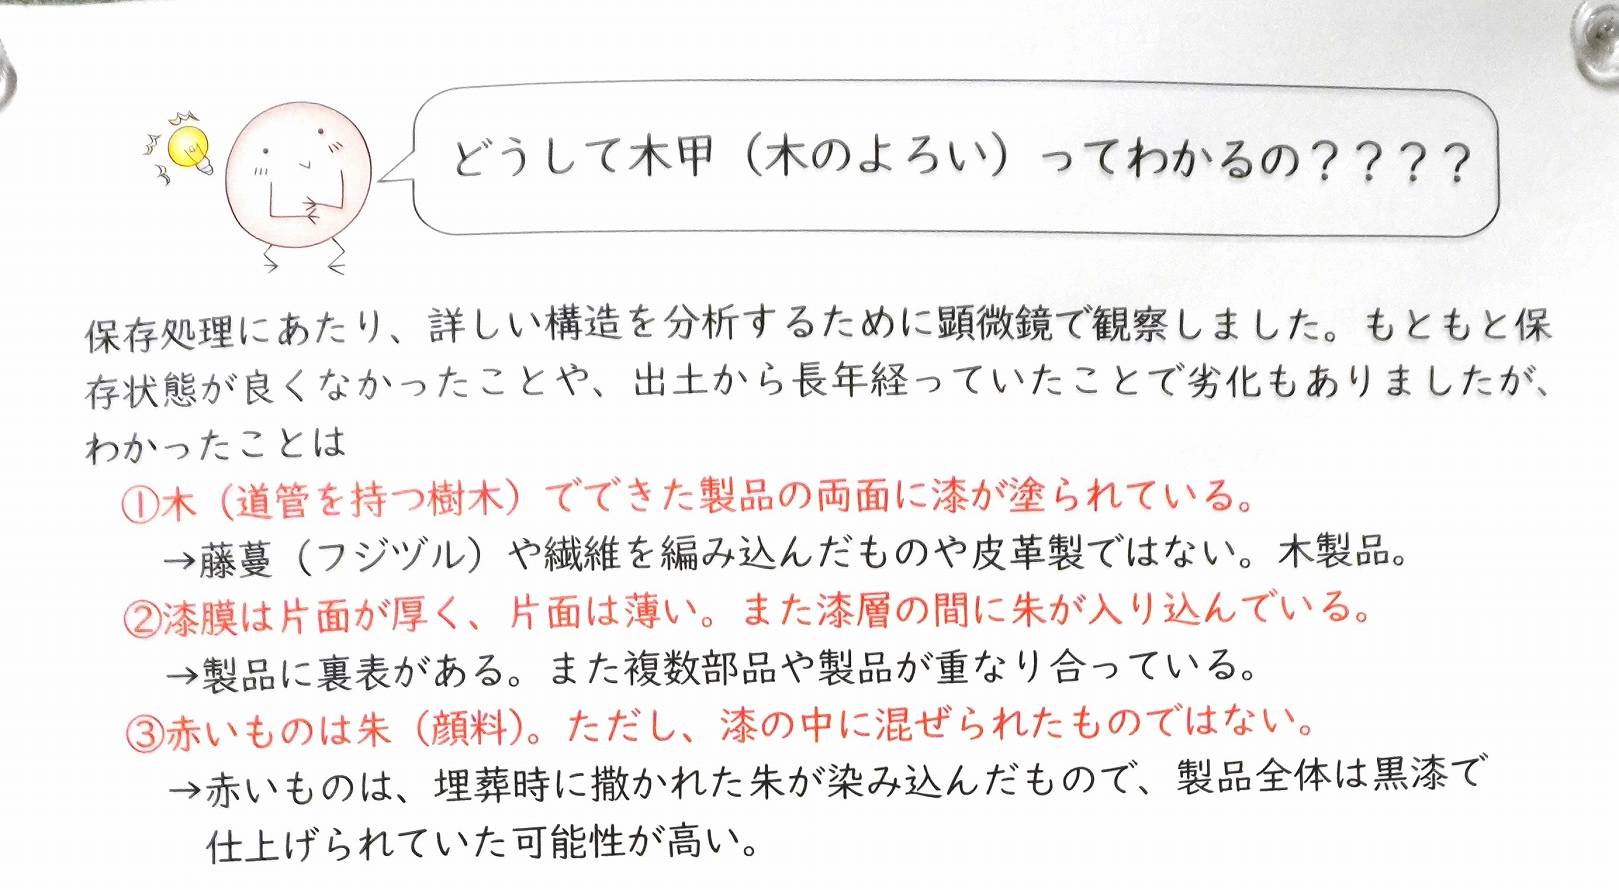 どうして木甲（木のよろい）ってわかるの？？？？
保存処理にあたり、詳しい構造を分析するために顕微鏡で観察しました。もともと保
存状態が良くなかったことや、出土から長年経っていたことで劣化もありましたが、
わかったことは
①木（道管を持つ樹木）でできた製品の両面に漆が塗られている。
→藤蔓（フジヅル）や繊維を編み込んだものや皮革製ではない。木製品。
②漆膜は片面が厚く、片面は薄い。また漆層の間に朱が入り込んでいる。
→製品に裏表がある。また複数部品や製品が重なり合っている。
③赤いものは朱（顔料）。ただし、漆の中に混ぜられたものではない。
→赤いものは、埋葬時に撒かれた朱が染み込んだもので、製品全体は黒漆で
仕上げられていた可能性が高い。